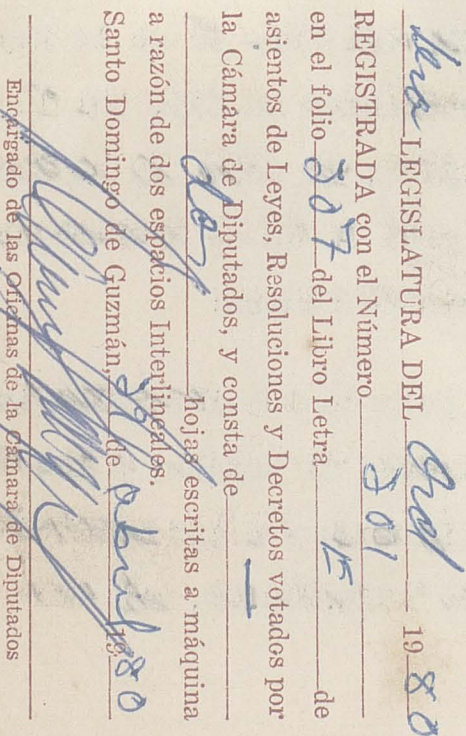 1era LEGISLATURA DEL Ord 1980
REGISTRADA con el Número 301
en el folio 307 del Libro Letra E de
asientos de Leyes, Resoluciones y Decretos votados por
la Cámara de Diputados, y consta de
dos hojas escritas a máquina
a razón de dos espacios Interlineales.
Santo Domingo de Guzmán, de abril 1980
Encargado de las Oficinas de la Cámara de Diputados